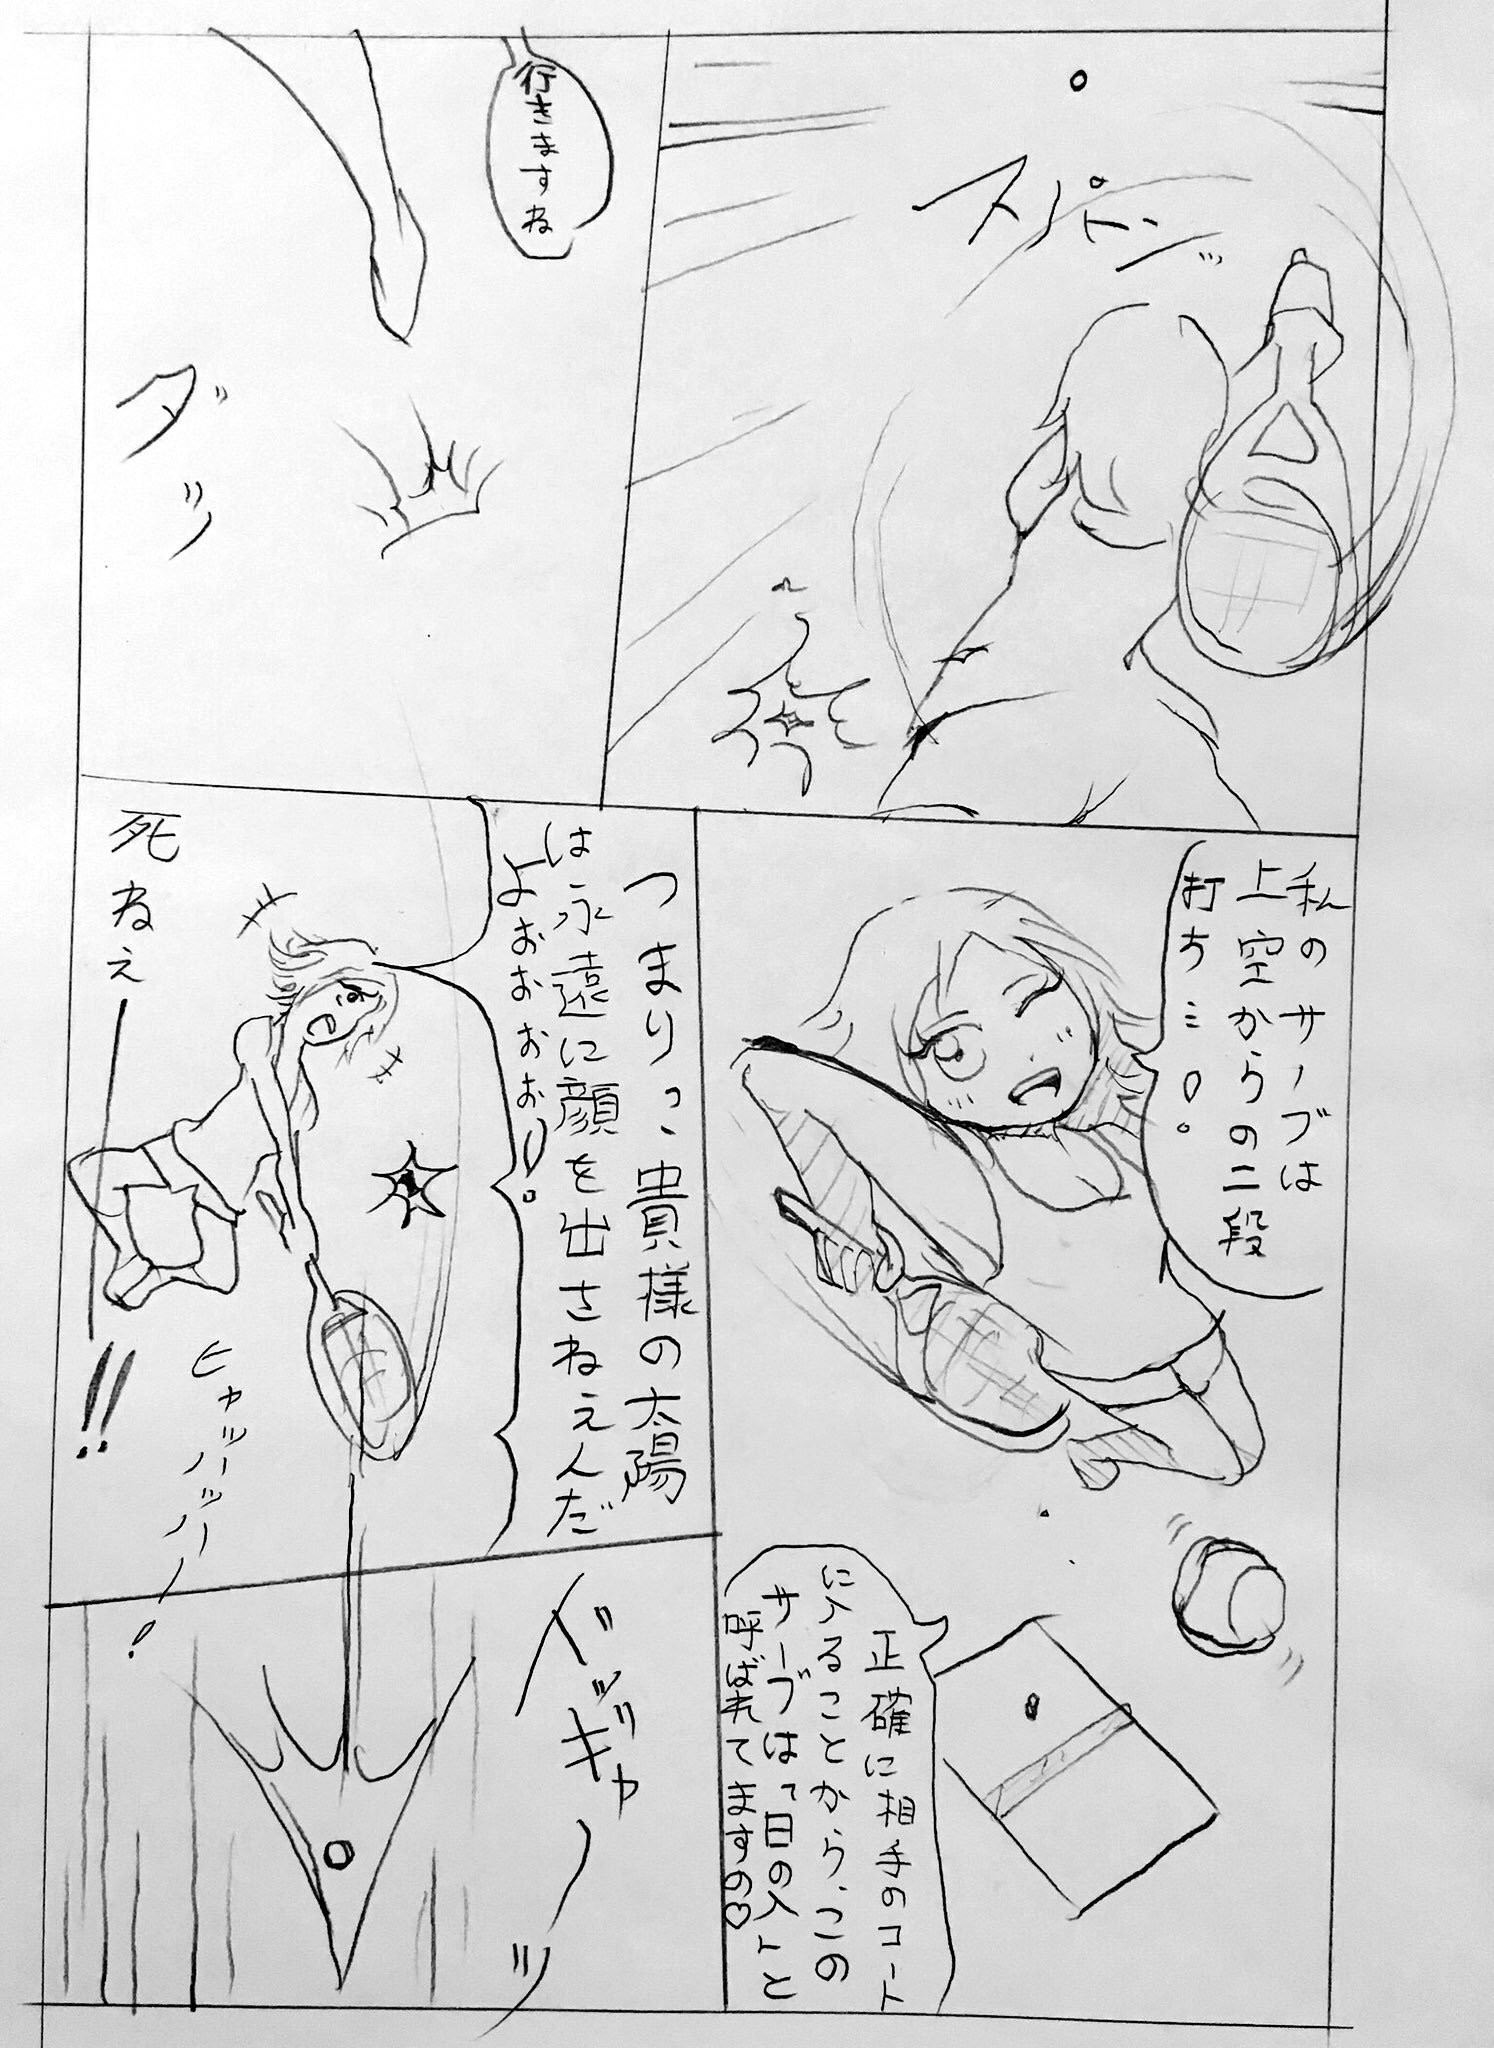 スパンッ
行きますね
ダッ
私のサーブは
上空からの二段
打ち…!。
正確に相手のコート
に入ることから、この
サーブは「日の入」と
呼ばれてますの♡
つまり:貴様の太陽
は永遠に顔を出さねぇんだ
よぉぉぉぉ!。
死ねぇー!!
ヒャッハッハー!
ドッギャーッ